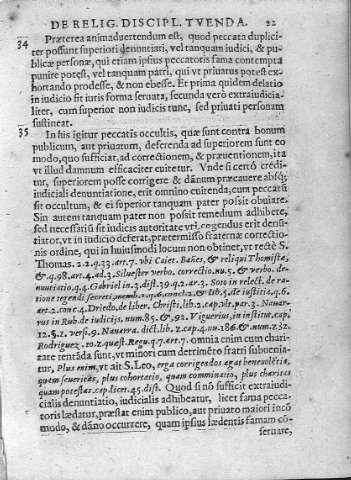 DE RELIG. DISCIPL. TVENDA. 22
34 Præterea animaduertendum est, quod peccata duplici-
ter possunt superiori denuntiari, vel tanquam iudici, & pu-
blicæ personæ, qui etiam ipsius peccatoris fama contempta
punire potest, vel tanquam patri, qui vt priuatus potest ex-
hortando prodesse, & non obesse. Et prima quidem delatio
in iudicio fit iuris forma seruata, secunda verò extraiudicia-
liter, cum superior non iudicis tunc, sed priuati personam
sustineat.
35 In his igitur peccatis occultis, quæ sunt contra bonum
publicum, aut priuatum, deferenda ad superiorem sunt eo
modo, quo sufficiat, ad correctionem, & præuentionem, ita
vt illud damnum efficaciter euitetur. Vnde si certò credi-
tur, superiorem posse corrigere & dãnum præcauere absq;
iudiciali denuntiatione, erit omnino euitenda, cum peccatũ
sit occultum, & ei superior tanquam pater possit obuiare.
Sin autem tanquam pater non possit remedium adhibere,
sed necessariũ sit iudicis autoritate vti, cogendus erit denũ-
tiator, vt in iudicio deferat, prætermisso fraternæ correctio-
nis ordine, qui in huiusmodi locum non obtinet, vt rectè S.
Thomas. 2. 2. q. 33. art. 7. vbi Caiet. Bañes, & reliqui Thomistæ,
& q. 98. art. 4. ad. 3. Siluester verbo. correctio. nu. 5. & verbo. de-
nuntiatio. q. 4. Gabriel in. 3. dist. 39. q. 2. ar. 3. Soto in relect. de ra-
tione tegendi secreti, memb. 2. q. 6. concl. 2. & lib. 5. de iustitia. q. 6.
art. 2. conc. 4. Driedo, de liber. Christi, lib. 2. cap. de. par. 3. Nauar-
rus in Rub. de iudicijs. num. 85. & 92. Viguerius, in institut. cap.
12. §. 2. versi. 9. Nauarra. dict. lib. 2. cap. 4. nu. 186. & num. 232.
Rodriguez. to. 2. quæst. Regu. q. 7. art. 7. omnia enim cum chari-
tate tentãda sunt, vt minori cum detrimẽto fratri subuenia-
tur, Plus enim, vt ait S. Leo, erga corrigendos agat beneuolẽtia,
quàm seueritas, plus cohortatio, quàm comminatio, plus charitas
quàm potestas. cap. licet. 45. dist. Quod si nõ sufficit extraiudi-
cialis denuntiatio, iudicialis adhibeatur, licet fama pecca-
toris lædatur, præstat enim publico, aut priuato maiori incõ
modo, & dãno occurrere, quam ipsius lædentis famam cõ-
seruare,